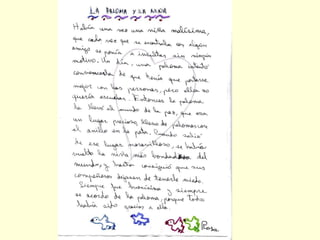 LA PALOMA Y LA NIÑA
Había una vez una niña malísima,
que cada vez que se montaba con algún
amigo se ponía a insultar sin ningún
motivo. Un día, una paloma intentó
convencerla de que tenía que portarse
mejor con las personas, pero ella no
quería escuchar. Entonces la paloma
la llevó al mundo de la paz, que era
un lugar precioso lleno de palomas con
el anillo en la pata. Cuando salió
de ese lugar maravilloso, se había
vuelto la niña más bondadosa del
mundo y hasta consiguió que sus
compañeros dejasen de tenerle miedo.
Siempre fue buenísima y siempre
se acordó de la paloma, porque todo
había sido gracias a ella.
Rosa